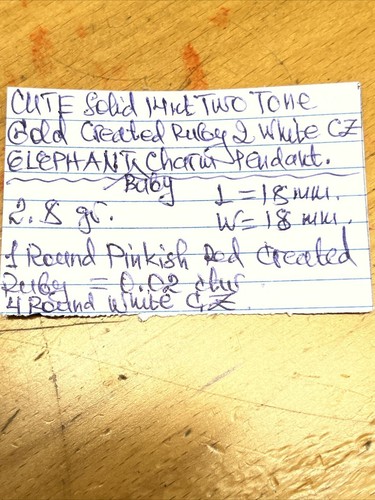 CUTE Solid 14kt TWO Tone
Gold Created Ruby 2 White CZ
ELEPHANT Charm Pendant.
Baby L = 18 mm.
2.8 gr. W = 18 mm.
1 Round Pinkish Red Created
Ruby = 0.02
4 Round White CZ